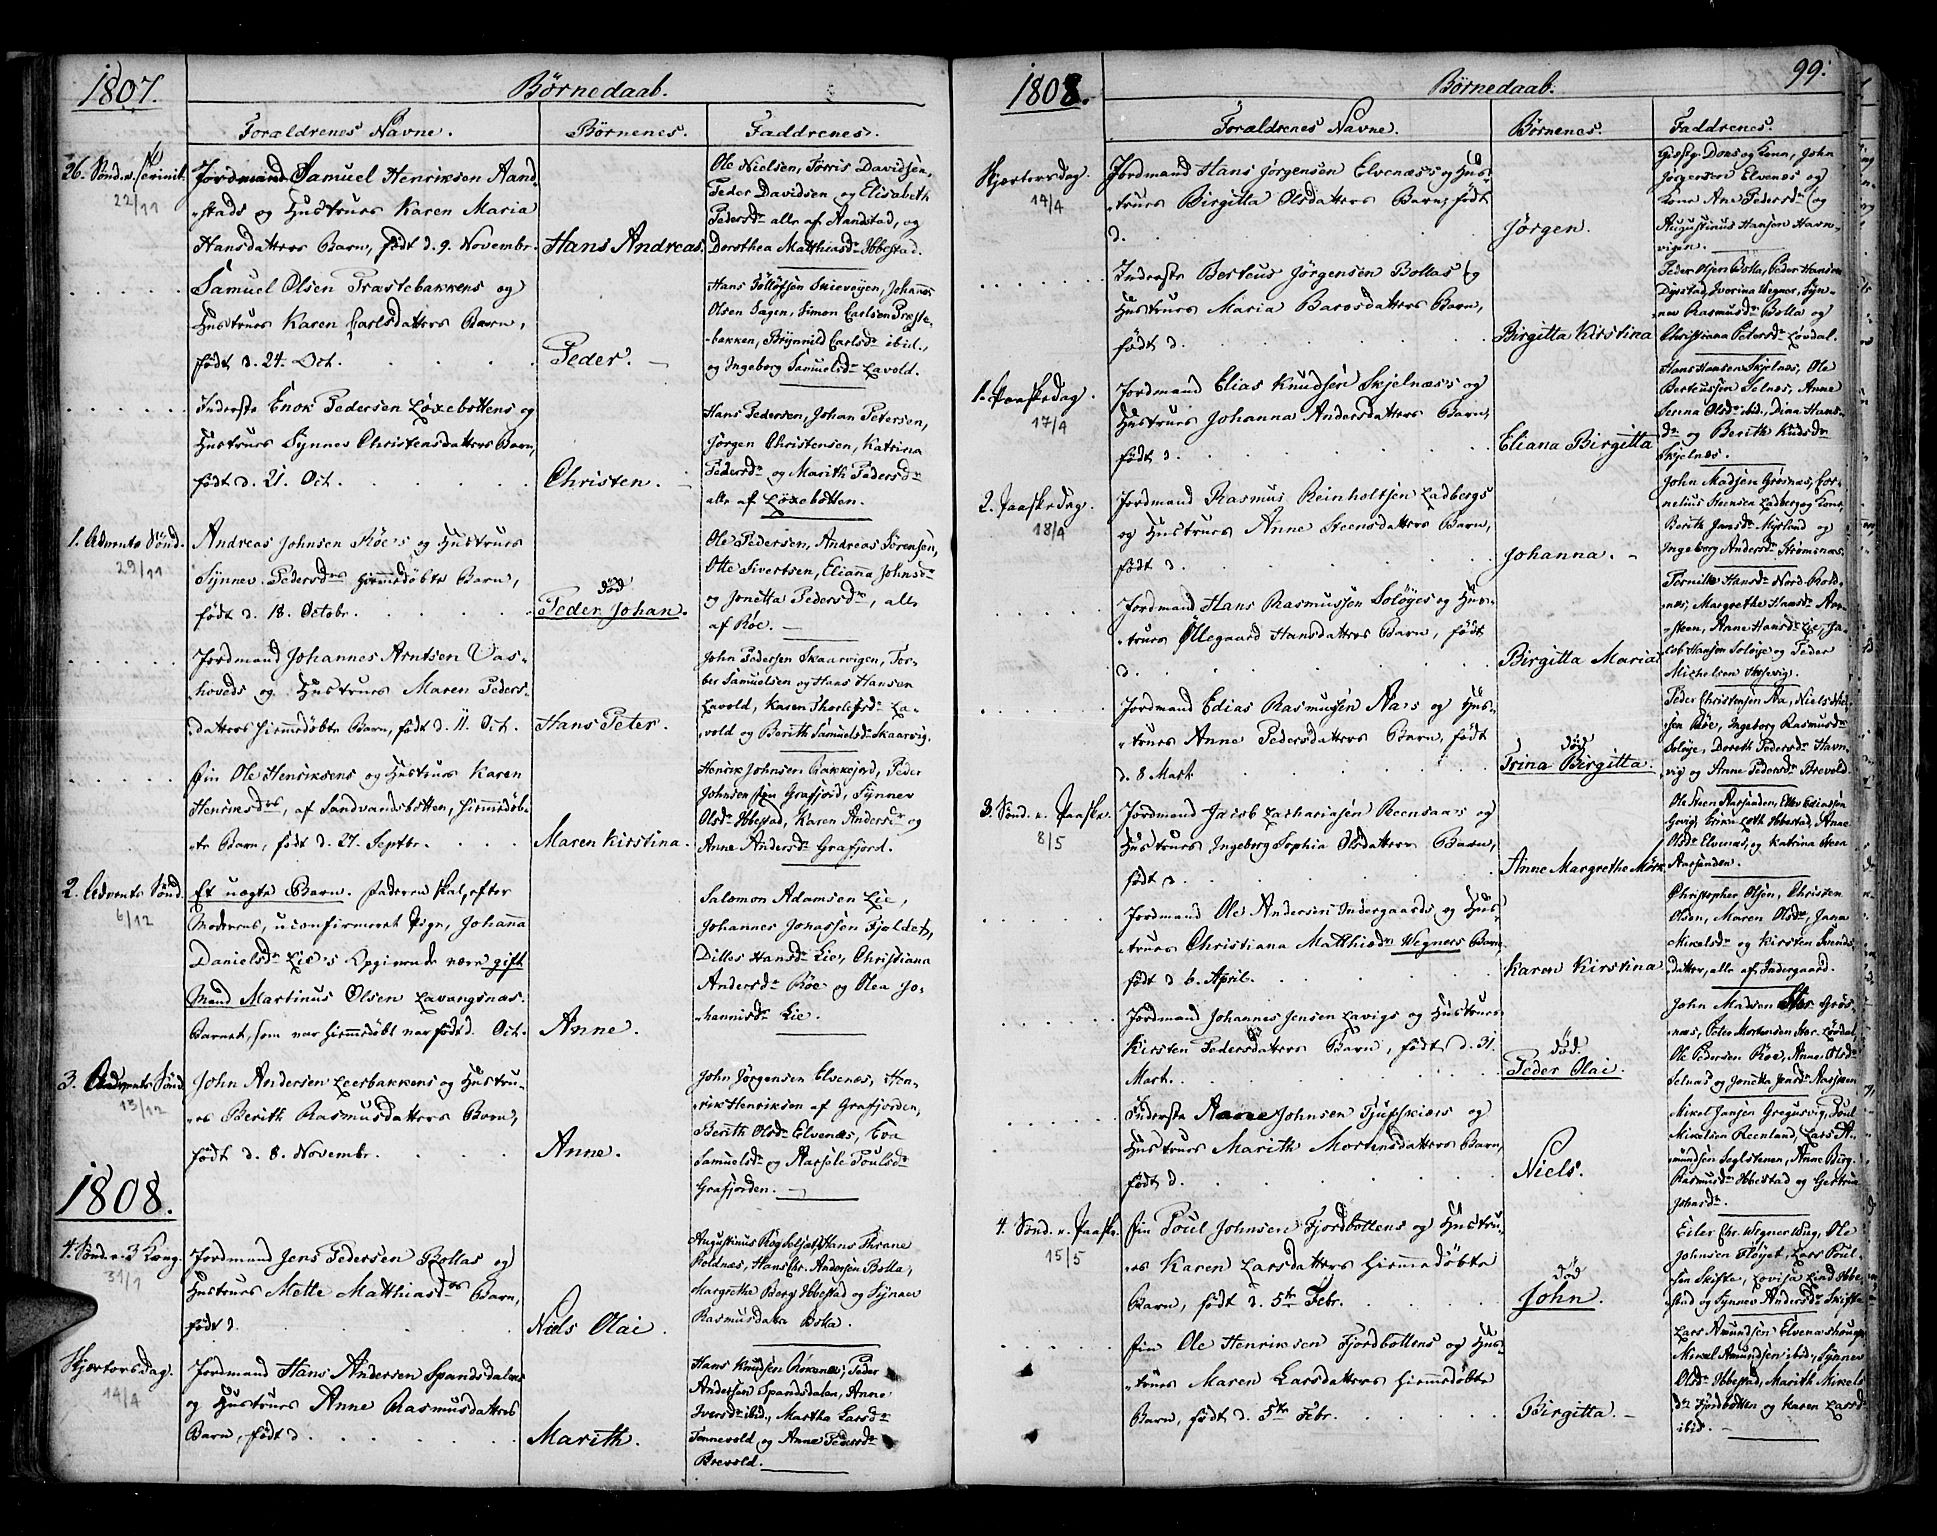 1807.
Børnedaab.
Forældrenes Navne.
Børnenes.
Faddrenes.
26. Sønd. e. Trinit.
22/11
Jordmand Samuel Henriksen Aand-
stads og Hustrues Karen Maria
Hansdatters Barn, født d. 9. Novembr.
Hans Andreas.
Ole Nielsen, Torris Davidsen,
Peder Davidsen og Elisabeth
Pedersdr alle af Aandstad, og
Dorothea Matthiasdr Ibbestad.
Samuel Olsen Præstebakkens og
Hustrues Karen Carlsdatters Barn,
født d. 24. Oct.
Peder.
Hans Tollofsen Skieveyen, Johannes
Olsen Sagen, Simon Carlsen Præste-
bakken, Brÿnnild Carlsdr ibid.,
og Ingeborg Samuelsdr Lavold.
Inderste Enok Pedersen Løxebottens og
Hustrues Synnev Christensdatters Barn,
født d. 21. Oct.
Christen.
Hans Pedersen, Johan Petersen,
Jørgen Christensen, Katrina
Pedersdr og Marith Pedersdr
alle af Løxebotten.
1. Advents Sønd.
29/11
Andreas Johnsen Røe's og Hustrues
Sÿnnev Pedersdrs hjemmedøbte Barn,
født d. 18. Octobr.
død
Peder Johan.
Ole Pedersen, Andreas Sørensen,
Otte Sivertsen, Elianna Johnsdr
og Jonetta Pedersdr, alle
af Røe.
Jordmand Johannes Arntsen Vas-
hoveds og Hustrues Maren Peders-
datters hjemmedøbte Barn, født d. 11. Oct.
Hans Peter.
John Pedersen Skaarvigen, Tor-
ber Samuelsen og Hans Hansen
Lavold, Karen Thorlefsdr La-
vold og Berith Samuelsdr Skaarvig.
Fin Ole Henriksens og Hustrues Karen
Henriksdrs, af Sandvandsbotten, hjemmedøb-
te Barn, født d. 27. Septbr.
Maren Kirstina.
Henrik Johnsen Bakkejord, Peder
Johnsen Grafjord, Sÿnnev
Olsdr Ibbestad, Karen Andersdr og
Anne Andersdr Grafjord.
2. Advents Sønd.
6/12
Et uægte Barn. Faderen skal, efter
Moderens, uconfirmeret Pige, Johanna
Danielsdr Lie's Opgivende være gift
Mand Martinus Olsen Lavangsnæs.
Barnet, som var hjemmedøbt var født d. Oct.
Anne.
Salomon Adamsen Lie,
Johannes Jonassen Fjeldet,
Dilles Hansdr Lie, Christiana
Andersdr Røe og Olea Jo-
hannisdr Lie.
3. Advents Sønd.
13/12
John Andersen Leerbakkens og Hustru-
es Berith Rasmusdatters Barn,
født d. 8. Novembr.
Anne.
John Jørgensen Elvenæs, Hen-
rik Henriksen af Grafjorden,
Berith Olsdr Elvenæs, Eva
Samuelsdr og Karsele Poulsdr
Grafjorden.
1808.
4. Sønd. e. 3 Kong.
31/1
Jordmand Jens Pedersen Bollas og
Hustrues Mette Matthiasdrs Barn,
født d.
Niels Olai.
Hans Thrane
Roldnæs, Hans Chr. Andersen Bolla,
Margrethe Berg Ibbestad og Sÿnnev
Rasmusdatter Bolla.
Skjertorsdag.
14/4
Jordmand Hans Andersen Spandsdalens
og Hustrues Anne Rasmusdatters
Barn, født d.
Marith.
Hans Knudsen Rökenæs, Peder
Andersen Spandsdalen, Anne
Iversdr ibid., Martha Larsdr
Tennevold og Anne Pedersdr
Brevold.
1808.
Børnedaab.
99.
Forældrenes Navne.
Børnenes.
Faddrenes.
Skjertorsdag.
14/4
Jordmand Hans Jørgensen Elvenæs's og Hus-
trues Birgitta Olsdatters Barn, født
d.
Jørgen.
Dons og Kone, John
Jørgensen Elvenæs og
Kone Ane Pedersdr og
Augustinus Hansen Havn-
vigen.
Inderste Berteus Jørgensen Bollas og
Hustrues Maria Baroesdatters Barn,
født d.
Birgitta Kirstina
Peder Olsen Bolla, Peder Hansen
Dyrstad, Iverina Wegner, Sÿn-
nev Rasmusdr Bolla og
Christiana Petersdr Løvdal.
1. Paaskedag.
17/4
Jordmand Elias Knudsen Skjelnæs's og
Hustrues Johanna Andersdatters Barn,
født d.
Eliana Birgitta
Hans Hansen Skjelnæs, Ole
Berteussen Selnes, Anne
Serina Olsdr ibid., Dina Hans-
dr og Berith Knudsdr
Skjelnæs.
2. Paaskedag.
18/4
Jordmand Rasmus Reinholtsen Ladbergs
og Hustrues Anne Steensdatters Barn,
født d.
Johanna.
John Madsen Grøsnæs, Cor-
nelius Steensen Ladberg og Kone,
Berith Jensdr Myrland og
Ingeborg Andersdr Strømsnæs.
Jordmand Hans Rasmussen Soløjes og Hus-
trues Øllegaard Hansdatters Barn, født
d.
Birgitta Maria
Pernille Hansdr Nord-Rold-
næs, Margrethe Hansdr Arn-
steen, Anne Hansdr Lie, Ja-
cob Hansen Soløje og Peder
Michelsen Hessevig.
Jordmand Edias Rasmusen Aa's og Hus-
trues Anne Pedersdatters Barn, født
d. 8 Mart.
død
Trina Birgitta.
Peder Christensen Aa, Niels
sen Røe, Ingeborg Rasmusdr
Soløje, Doreth Pedersdr Havn-
vig og Anne Pedersdr Brevold.
3. Sønd. e. Paaske.
8/5
Jordmand Jacob Zachariasen Reensaa's og
Hustrues Ingeborg Sophia Olsdatters Barn,
født d.
Anne Margrethe Mørk
Ole Steen Aarsanden,
Ibbestad, Anne
Olsdr Elvenæs, og Katrina Steen
Aarsanden.
Jordmand Ole Andersen Indergaards og Hus-
trues Christiana Matthisdr Wegners Barn,
født d. 6. April.
Karen Kirstina
Christopher Olsen, Christen
Olsen, Maren Olsdr, Jana
Mikelsdr og Kirsten Svends-
datter, alle af Indergaard.
Jordmand Johannes Jensen Lavigs og Hustrues
Kirsten Pedersdatters Barn, født d. 31.
Mart.
død.
Peder Olai.
John Madsen Grøs-
næs, Peter Mortensen Løvdal,
Ole Pedersen Røe, Anne Olsdr
Selnæs og Jonetta Jensdr Aarsjøen
Inderste Aane Johnsen Tjufskiærs og
Hustrues Marith Mortensdatters Barn,
født d.
Niels.
Mikel Jansen Gregusvig, Poul
Mikelsen Reenland, Lars A-
mundsen Seglstenen, Anne Birg.
Rasmusdr Ibbestad og Gertrue
Johansdr.
4. Sønd. e. Paaske.
15/5
Fin Poul Johnsen Fjordbottens og Hustru-
es Karen Larsdatters hjemmedøbte
Barn, født d. 5te Febr.
død
John.
Eiler Chr. Wegner Wiig, Ole
Johnsen Fløjet, Lars Poul-
sen Skifte, Lovisa Lind Ibbe-
stad og Sÿnnev Andersdr Skifte
Fin Ole Henriksen Fjordbottens og Hus-
trues Maren Larsdatters hjemmedøbte
Barn, født d. 5te Febr.
Birgitta.
Lars Amundsen Elvenæshougen,
Mikel Amundsen ibid., Sÿnnev
Olsdr Ibbestad, Marith Mikels
dr Fjordbotten og Karen Larsdr
ibid.